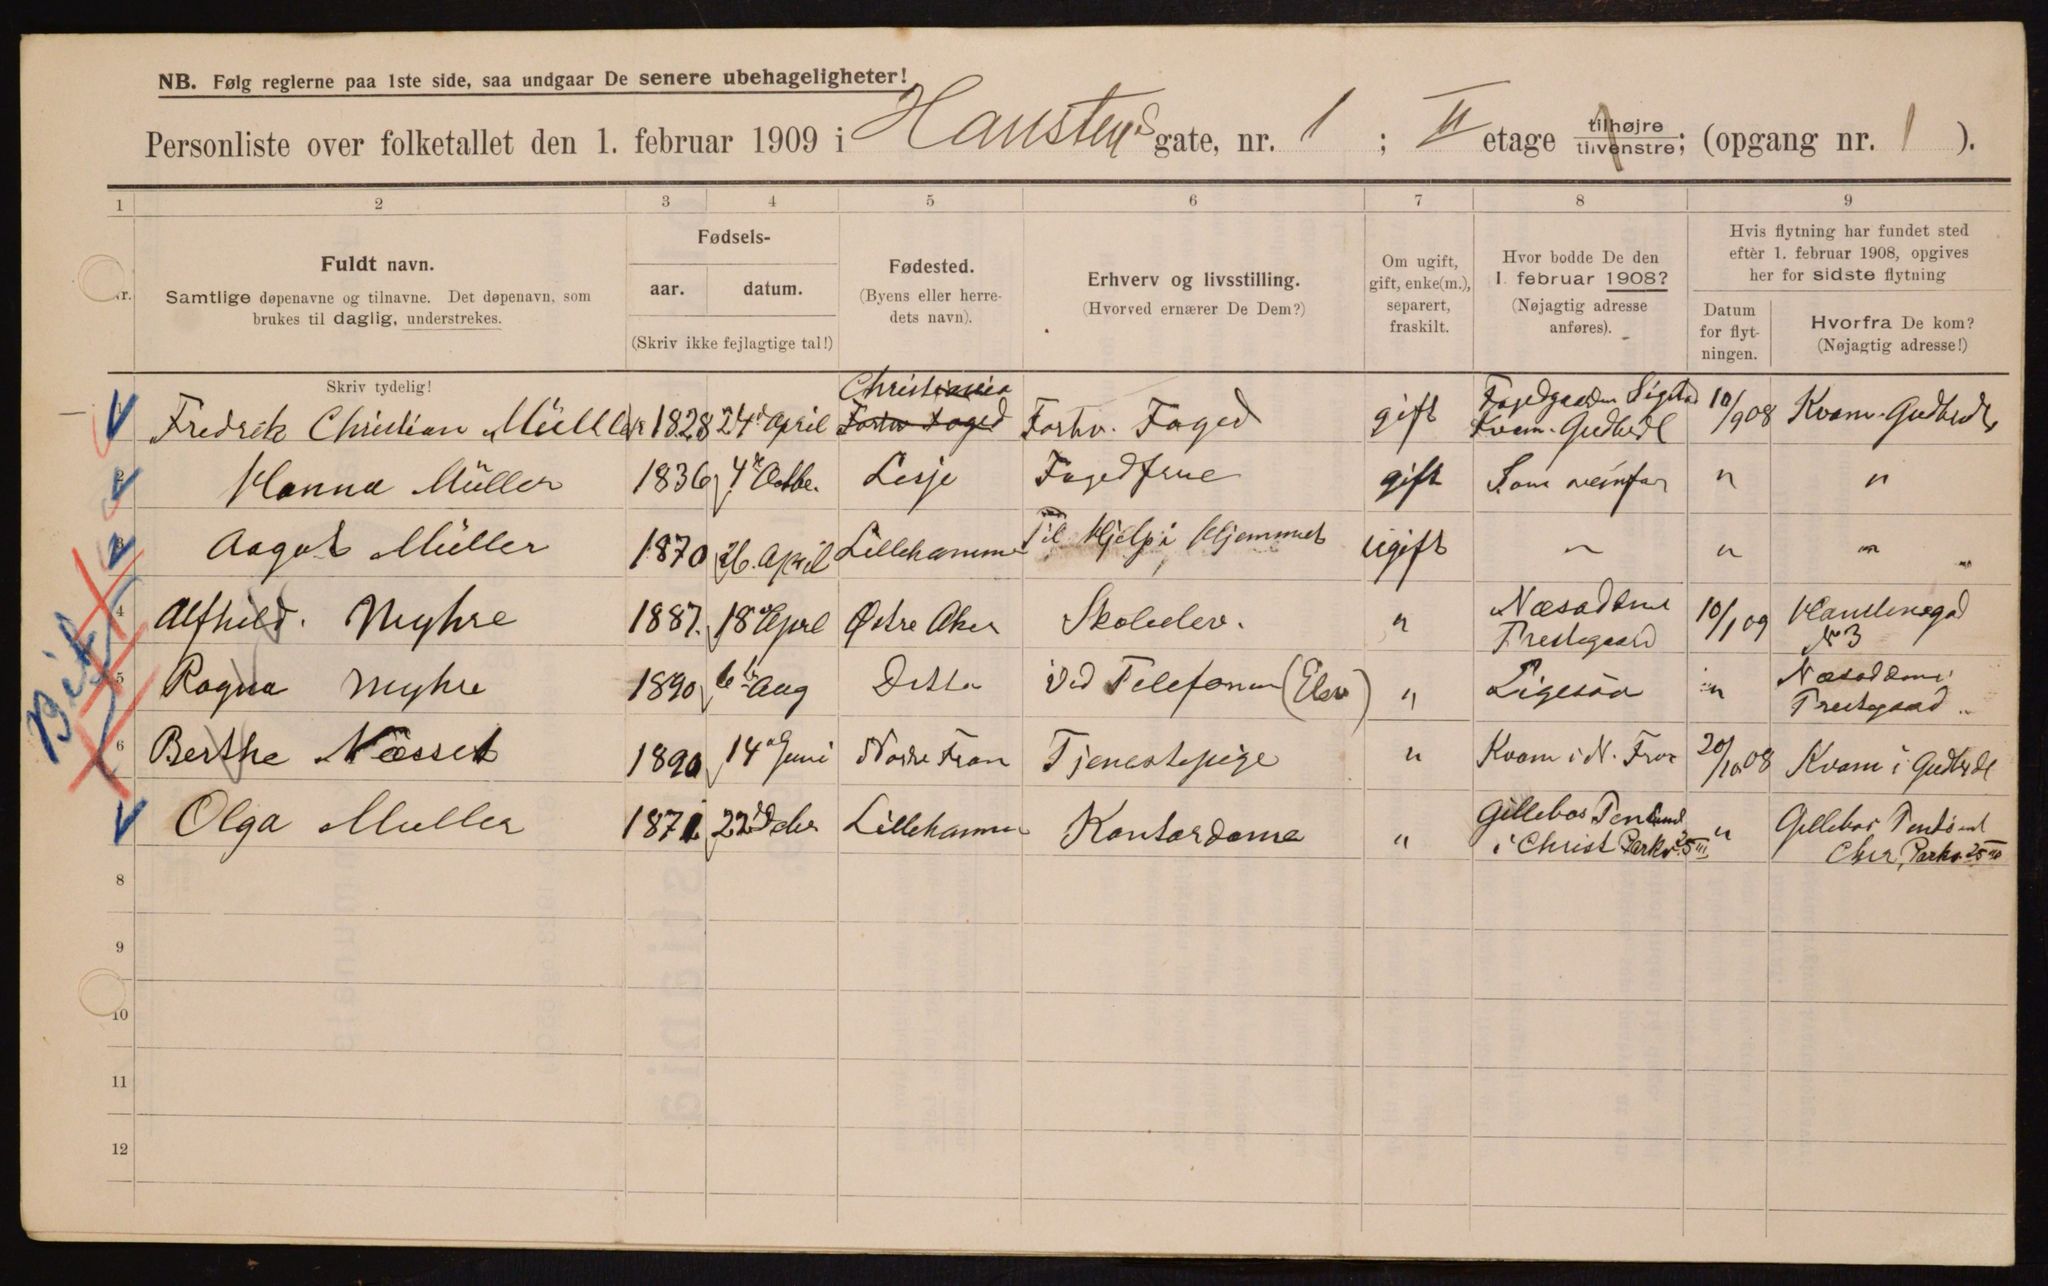 NB. Følg reglerne paa 1ste side, saa undgaar De senere ubehageligheter!
Personliste over folketallet den 1. februar 1909 i Hansteens gate, nr. 1 ; II etage tilhøjre tilvenstre; (opgang nr. 1 ).
1 2 3 4 5 6 7 8 9
Nr.
Fuldt navn.
Samtlige døpenavne og tilnavne. Det døpenavn, som
brukes til daglig, understrekes.
Skriv tydelig!
Fødsels-
aar. datum.
(Skriv ikke fejlagtige tal!)
Fødested.
(Byens eller herre-
dets navn).
Erhverv og livsstilling.
(Hvorved ernærer De Dem?)
Om ugift,
gift, enke(m.),
separert,
fraskilt.
Hvor bodde De den
1. februar 1908?
(Nøjagtig adresse
anføres).
Hvis flytning har fundet sted
eftèr 1. februar 1908, opgives
her for sidste flytning
Datum
for flyt-
ningen.
Hvorfra De kom?
(Nøjagtig adresse!)
Fredrik Christian Müller 1828 24 April Christiania Forhv. Foged Forhv. Foged gift Fogedgaarden Kvam Gudbrdl 10/9 08 Kvam Gudbrdl
2 Hanna Müller 1836 4 Octbr. Lesje Fogedfrue gift Som ovenfor " "
3 Aagot Müller 1870 26. April Lillehammer Til Hjelp i Hjemmet ugift " " "
4 Alfhild. Myhre 1887. 18 April Østre Aker Skoleelev. " Næsodden Prestegaard 10/1 09 No 3
5 Ragna Myhre 1890 6 Aug Ditto Ved Telefonen (Elev) " Ligesaa " Næsodden Prestegaard
6 Berthe Næsset 1890 14 Juni Nordre Fron Tjenestepige " Kvam i N. Fron 20/10 08 Kvam i Gudbrdl
Olga Muller 1871 22 Decbr Lillehammer Kontordame " Gillebos i Christ Parkv. 25 III " Gillebos Chr. Parkv. 25 III
8
9
10
11
12